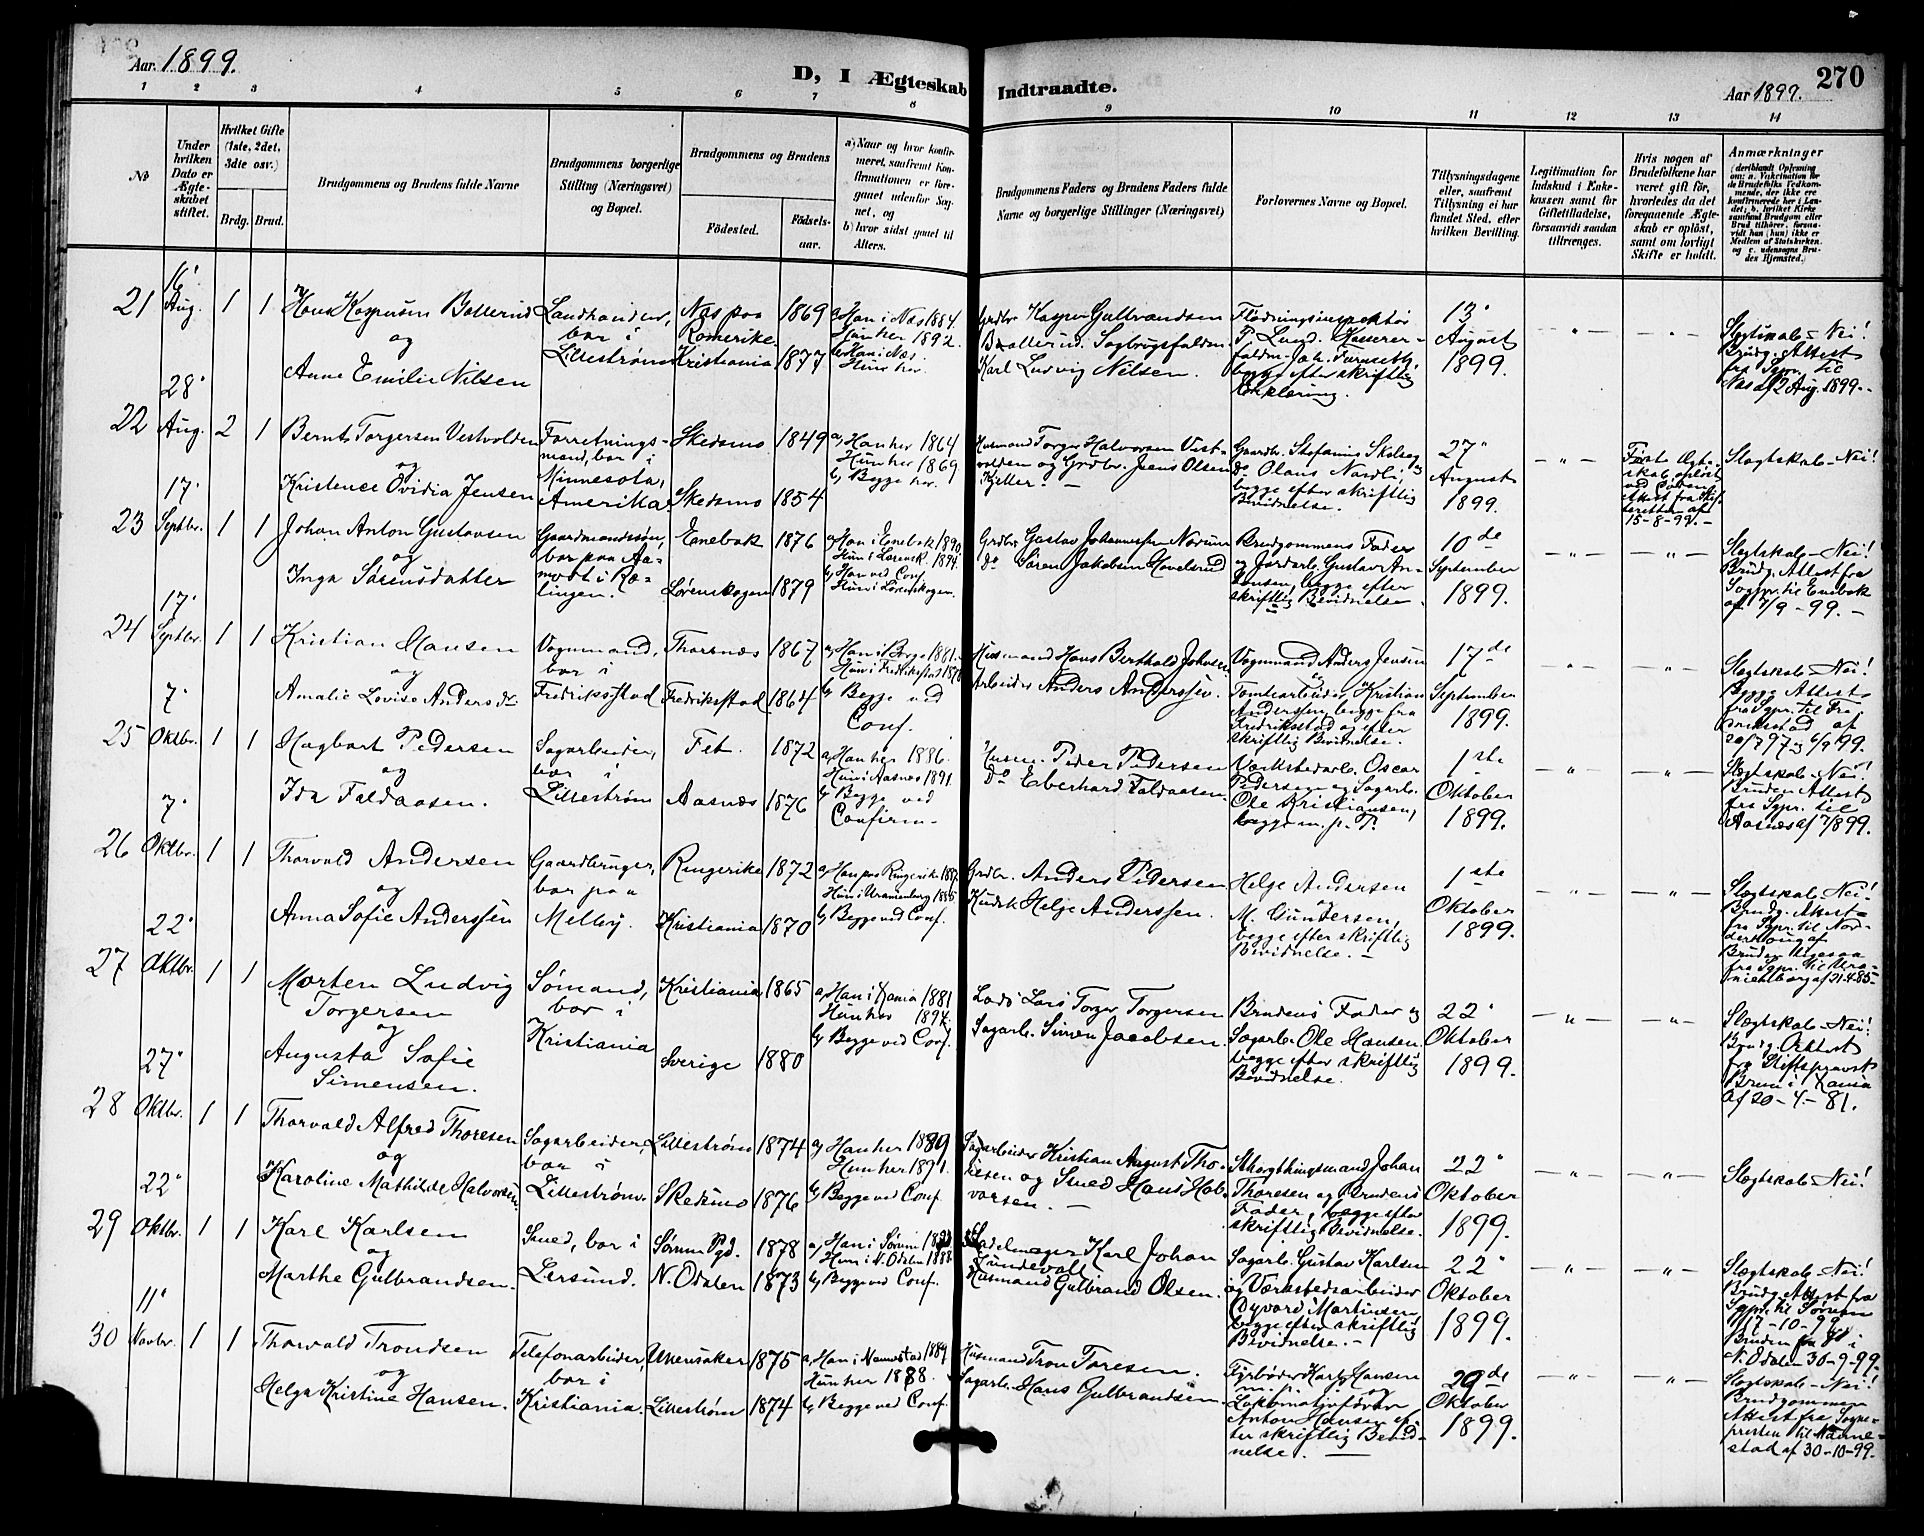 Aar. 1899.
D, I Ægteskab Indtraadte.
Aar 1899.
270
1 2 3 4 5 6 7 8 9 10 11 12 13 14
No
Under hvilken Dato er Ægteskabet stiftet.
Hvilket Gifte (1ste, 2det, 3die osv.)
Brdg. Brud.
Brudgommens og Brudens fulde Navne
Brudgommens borgerlige Stilling (Næringsvei) og Bopæl.
Brudgommens og Brudens
Födested.
Födselsaar.
a) Naar og hvor konfirmeret, saafremt Konfirmationen er foregaaet udenfor Sognet, og
b) hvor sidst gaaet til Alters.
Brudgommens Faders og Brudens Faders fulde Navne og borgerlige Stillinger (Næringsvei)
Forlovernes Navne og Bopæl.
Tillysningsdagene eller, saafremt Tillysning ei har fundet Sted, efter hvilken Bevilling.
Legitimation for Indskud i Enkekassen samt for Giftetilladelse, forsaavidt saadan tiltrænges.
Hvis nogen af Brudefolkene har været gift før, hvorledes da det foregaaende Ægteskab er oplöst, samt om lovligt Skifte er holdt.
Anmærkninger
21 16' Aug. 1 1
Hans Kaspersen Bollerud
og
Anne Emilie Nilsen
Landhandler, bor i Lillestrøm
Næs paa Romerike. 1869
Kristiania 1877
a, Han i Næs 1884.
Hun her 1892.
b, Han i Næs.
Hun her.
Grdbr. Kasper Gulbrandsen
Bollerud. Sagbrugsfuldm.
Karl Ludvig Nilsen.
Fløtningsinspektør
P. Lund. Kasserer-
fuldm. Joh.
begge efter skriftlig
Erklæring.
13' August 1899.
Slægtskab - Nei!
Brudg. Attest
fra Sgpr. til
Næs af 12 Aug. 1899.
22 28' Aug. 2 1
Bernt Torgersen Vestvolden
og
Kristence Ovidia Jensen
Forretningsmand, bor i
Minnesota,
Amerika.
Skedsmo 1849
Skedsmo 1854
a, Han her 1864
Hun her 1869
b, Begge her.
Husmand Torger Halvorsen Vest-
volden og Grdbr. Jens Olsen
Kjeller.
Gaardbr. Stefanus Skolseg
do Olaus Nordli,
begge efter skriftlig
Bevidnelse.
27' August 1899.
Første Ægte-
skab opløst
ved
Attest fra Skif-
teretten af
15-8-99.
Slægtskab - Nei!
23 17' Septbr. 1 1
Johan Anton Gustavsen
og
Inga Sørensdatter
Gaardmandssøn,
bor paa Aa-
modt i Ræ-
lingen.
Enebak 1876
Lørenskogen 1879
a, Han i Enebak 1890.
Hun i Lørensk. 1894.
b, Han ved Conf.
Hun i Lørenskogen.
Grdbr. Gustav Johannesen Norum
do Søren Jakobsen Hovelsrud
Brudgommens Fader
og Jordarb. Gustav An-
tonsen, begge efter
skriftlig Bevidnelse.
10de September 1899.
Slægtskab - Nei!
Brudg. Attest fra
Sogpr. til Enebak
af 7/9-99.
24 17' Septbr. 1 1
Kristian Hansen
og
Amalie Lovise Andersdr.
Vognmand,
bor i
Fredriksstad
Thorsnæs 1867
Fredriksstad 1864
a, Han i Borge 1881.
Hun i Fredriksstad
b, Begge ved
Conf.
Husmand Hans Berthold Johnsen
Arbeider Anders Anderssen.
Vognmand Anders Jensen
og
Tomtearbeider Kristian
Anderssen, begge fra
Fredriksstad og efter
skriftlig Bevidnelse.
17de September 1899.
Slægtskab - Nei!
Begge Attest
fra Sgpr. til Fre-
driksstad af
20/7 97 og 6/9 99.
25 7' Oktbr. 1 1
Hagbart Pedersen
og
Ida Faldaasen.
Sagarbeider,
bor i
Lillestrøm
Fet. 1872
Aasnæs 1876
a, Han her 1886.
Hun i Aasnæs 1891.
b, Begge ved
Confirm.
Husm. Peder Pedersen
Do Eberhard Faldaasen.
Værkstedarb. Oscar
Pedersen og Sagarb.
Ole Kristiansen,
begge m. p. P.
1ste Oktober 1899.
Slægtskab - Nei!
Bruden Attest
fra Sgpr. til
Aasnæs af
26 7' Oktbr. 1 1
Thorvald Andersen
og
Anna Sofie Anderssen
Gaardbruger,
bor paa
Melby.
Ringerike 1872
Kristiania 1870
a, Han paa Ringerike 1887.
Hun i Uranienborg 1885
b, Begge ved Conf.
Grdbr. Anders Pedersen
Kudsk Helje Anderssen.
Helje Andersen
og
M. Gundersen,
begge efter skriftlig
Bevidnelse.
1ste Oktober 1899.
Slægtskab - Nei!
Brudg. Attest
fra Sgpr. til Nor-
derhoug af
Bruden ligesaa
fra Sgpr. til Ura-
nienborg af 21-4-85
27 22' Oktbr. 1 1
Morten Ludvig
Torgersen
og
Augusta Sofie
Simensen.
Sømand,
bor i
Kristiania
Kristiania 1865
Sverige 1880
a, Han i Kania 1881
Hun her 1894.
b, Begge ved Conf.
Lods Lars Torger Torgersen
Sagarb. Simen Jacobsen.
Brudens Fader og
Sagarb. Ole Hansen.
begge efter skriftlig
Bevidnelse.
22' Oktober 1899.
Slægtskab - Nei!
Brudg. Attest
fra Stiftsprovst
Bruun i Kania
af 20-4-81.
28 27' Oktbr. 1 1
Thorvald Alfred Thoresen
og
Karoline Mathilde Halvorsen
Sagarbeider,
bor i
Lillestrøm.
Lillestrøm 1874
Skedsmo 1876
a, Han her 1889
Hun her 1891.
b, Begge ved Conf.
Sagarbeider Kristian August Tho-
resen og Smed Hans Hal-
vorsen.
Storthingsmand Johan
Thoresen og Brudens
Fader, begge efter
skriftlig Bevidnelse.
22' Oktober 1899.
Slægtskab - Nei!
29 22' Oktbr. 1 1
Karl Karlsen
og
Marthe Gulbrandsen.
Smed, bor i
Lersund.
Sørum Pgd. 1878
N. Odalen 1873
a, Han i Sørum
Hun i N. Odalen 1888
b, Begge ved Conf.
Sadelmager Karl Johan
Sundevall
Husmand Gulbrand Olsen.
Sagarb. Gustav Karlsen
og Værkstedsarbeider
Martinsen
begge efter skriftlig
Bevidnelse.
22' Oktober 1899.
Slægtskab - Nei!
Brudg. Attest fra
Sgpr. til Sørum
17-10-99.
Bruden fra
N. Odalen 30-9-99.
30 11' Novbr. 1 1
Thorvald Trondsen
og
Helga Kristine Hansen.
Telefonarbeider,
bor i
Kristiania.
Ullensaker 1875
Lillestrøm 1874
a, Han i Nannestad 1889
Hun her 1888.
b, Begge ved Conf.
Husmand Tron Toresen.
Sagarb. Hans Gulbrandsen.
Fyrbøder Karl Hansen
og
Lokomotivfører
Anton Hansen ef-
ter skriftlig Bevid-
nelse.
29de Oktober 1899.
Slægtskab - Nei!
Brudgommen
Attest fra Sogne-
presten til Nanne-
stad af 30-10-99.